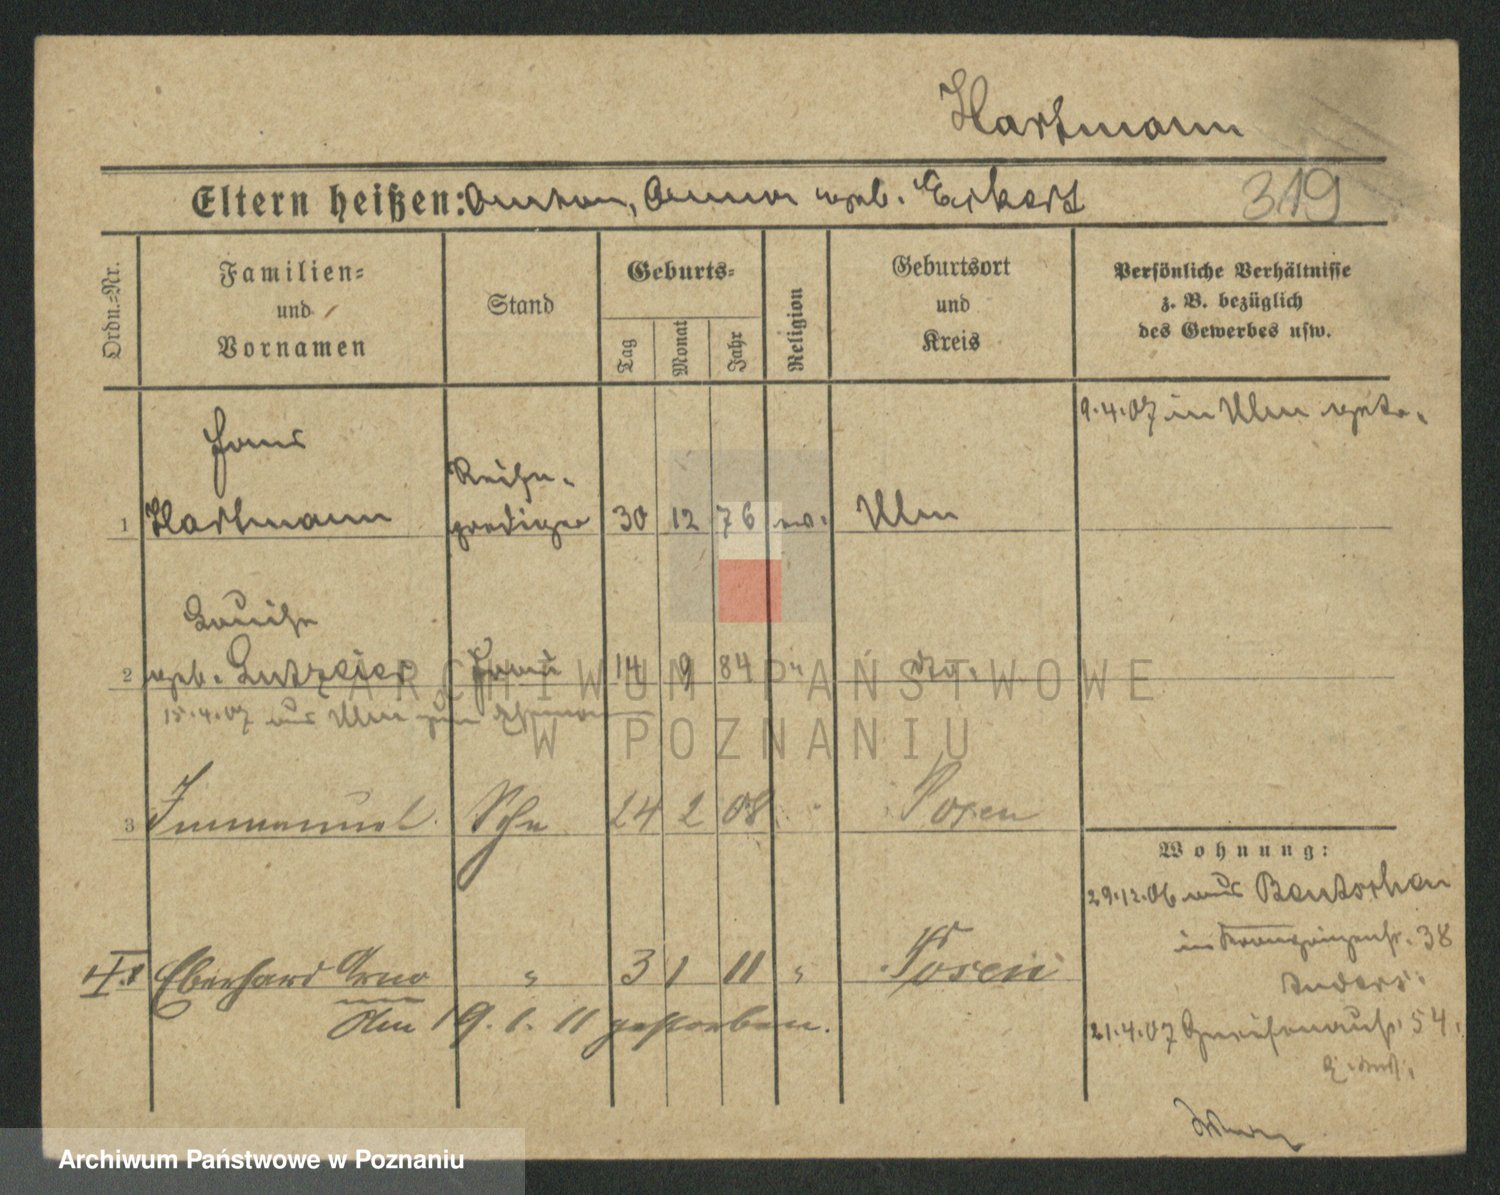 Hartmann
Eltern heißen: Anton, Anna geb. Eckert 319
Ordn.-Nr.
Familien-
und
Vornamen
Stand
Geburts-
Tag
Monat
Jahr
Religion
Geburtsort
und
Kreis
Persönliche Verhältnisse
z. B. bezüglich
des Gewerbes usw.
9.4.07 in Ulm getr.
Hans
1 Hartmann Reise-
prediger 30 12 76 ev. Ulm
Louise
2 geb. Frau 14 9 84 " dto.
15.4.07 aus Ulm zum Ehemann
3 Immanuel Sohn 24 2 08 " Posen
Wohnung:
29.12.06 aus Bentschen
in Kronprinzenstr. 38
Anders.
4 Eberhard Arno " 3 1 11 " Posen
Am 19.1.11 gestorben.
21.4.07 Gneisenaustr. 54.
ARCHIWUM PAŃSTWOWE
W POZNANIU
Archiwum Państwowe w Poznaniu